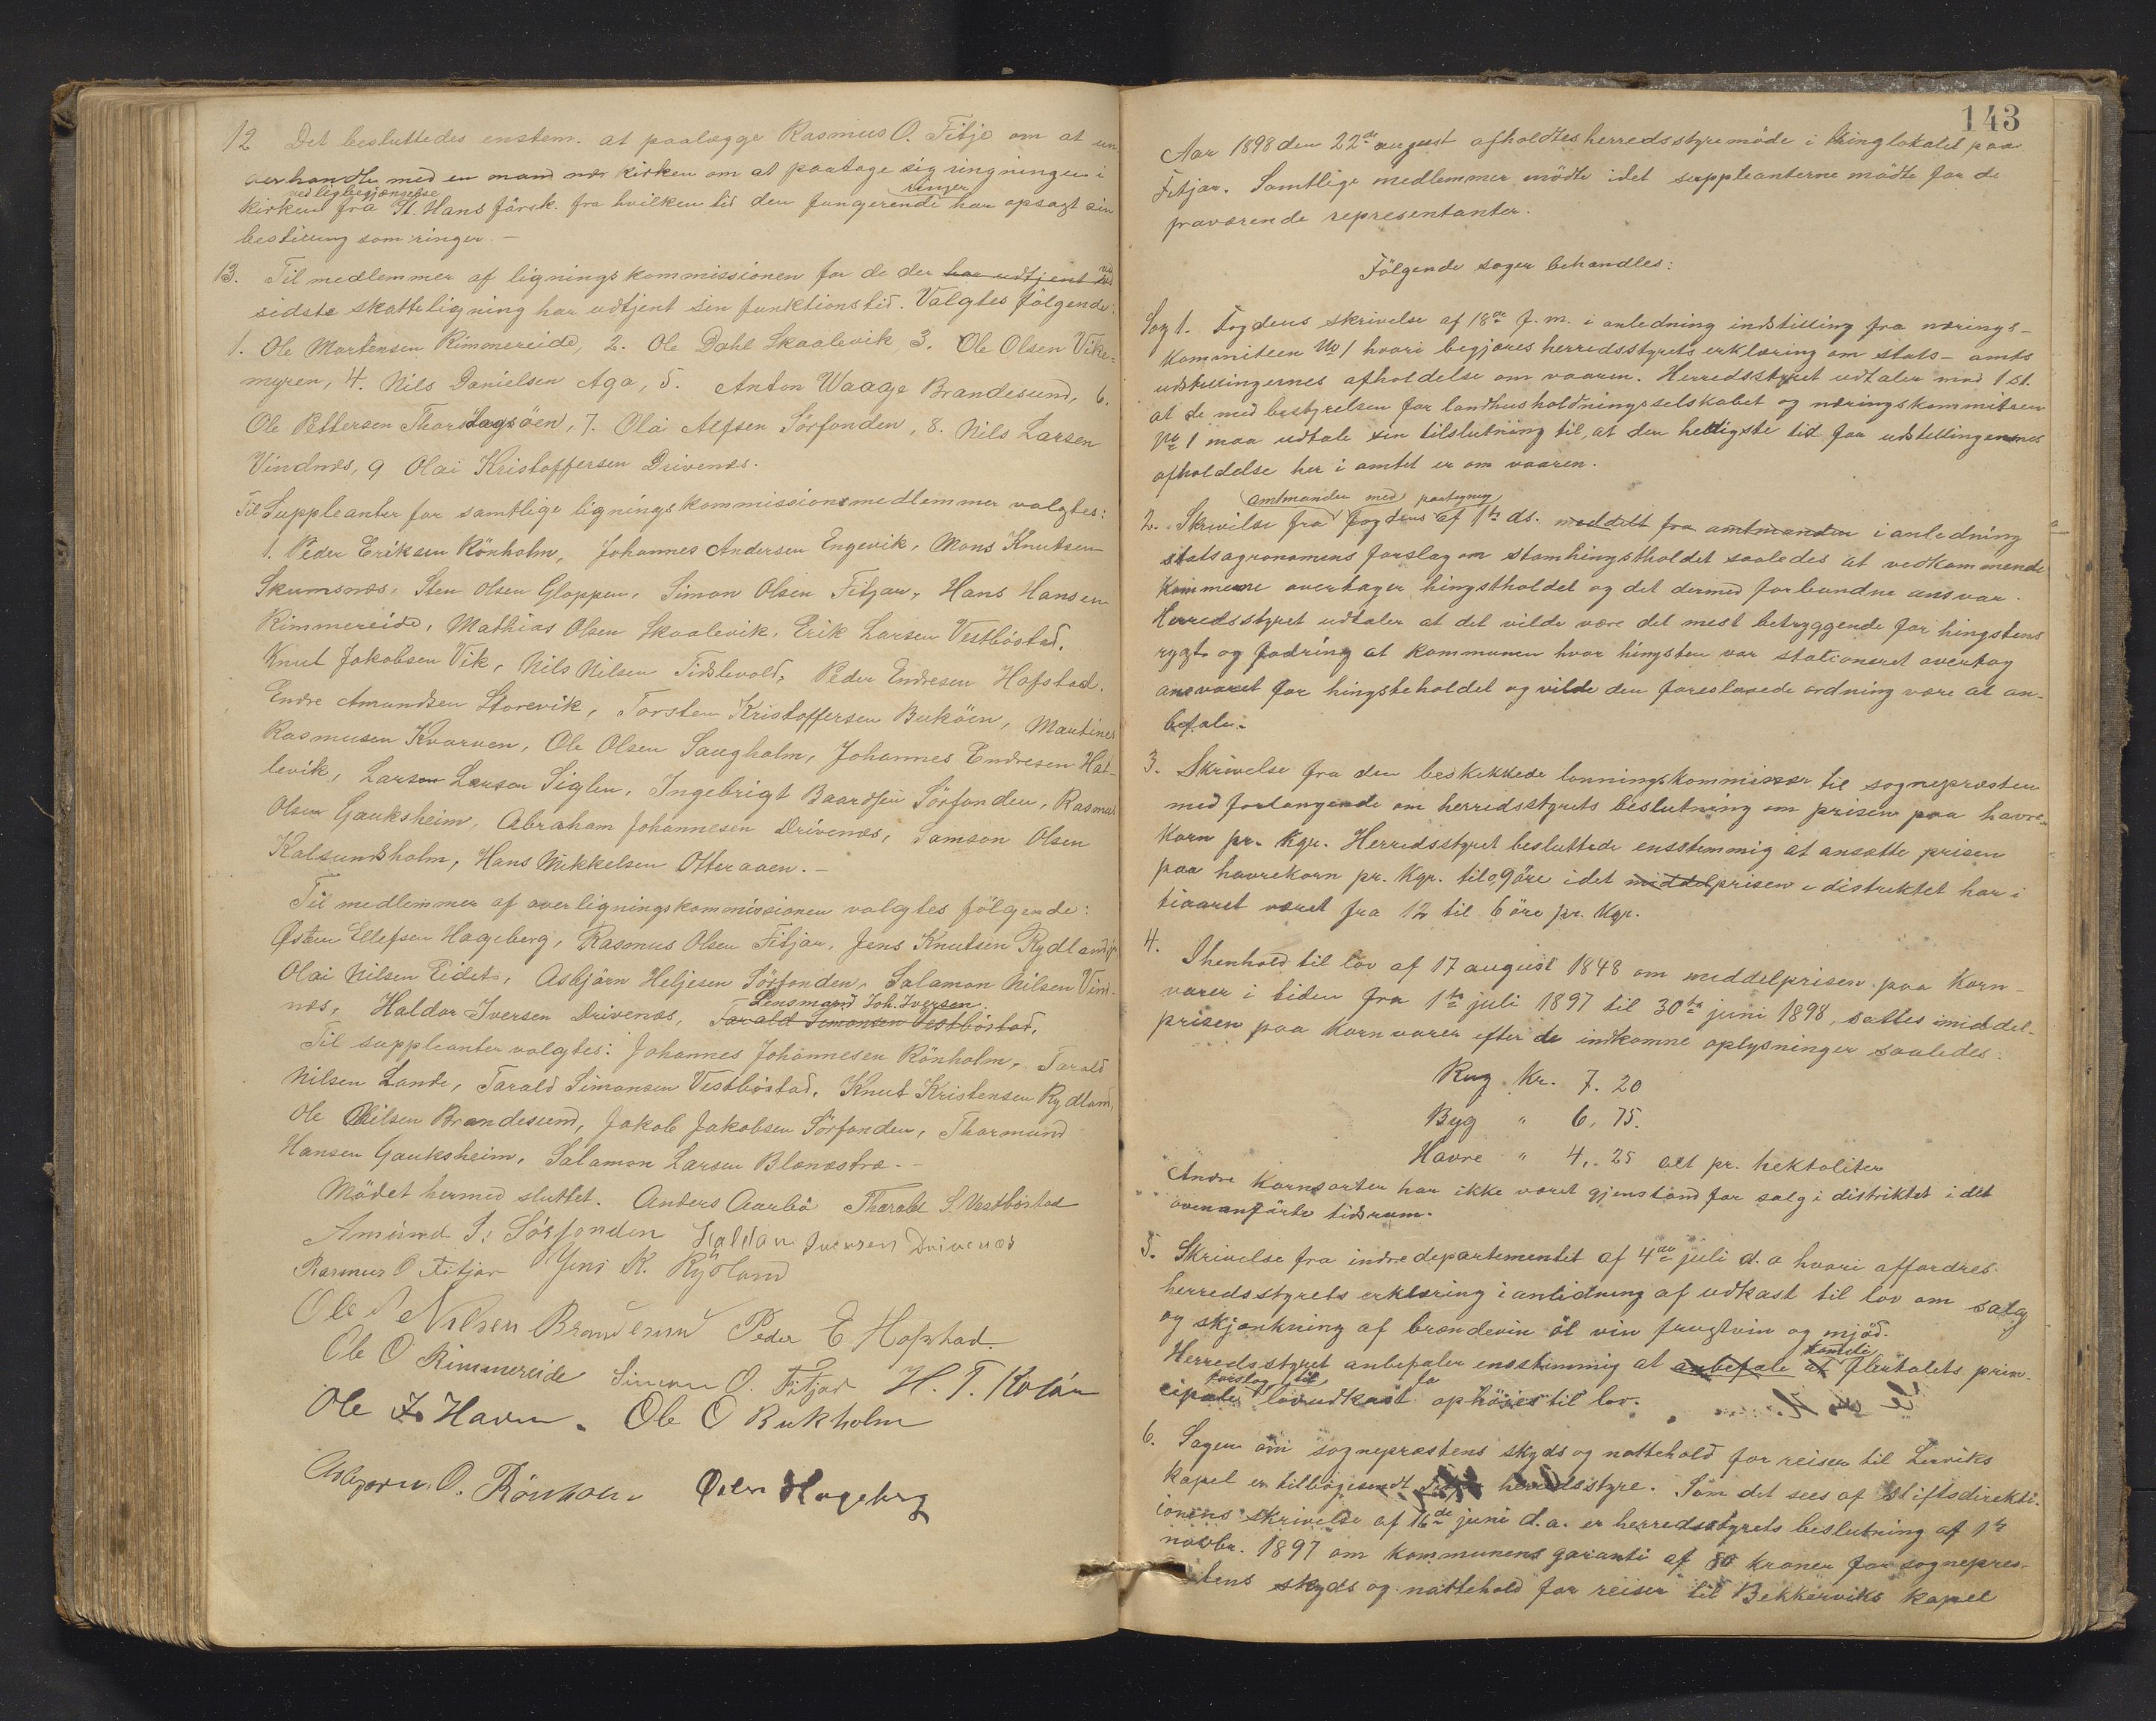 12 Det besluttedes enstem. at paalægge Rasmus O. Fitje om at un-
derhandle med en mand nær kirken om at paatage sig ringningen i
ved ligbegjængelse ringer
kirken fra St. Hans førsk. fra hvilken tid den fungerende har opsagt sin
bestilling som ringer. –
13. Til medlemmer af ligningskommissionen for de der har udtjent ved
sidste skatteligning har udtjent sin funktionstid. Valgtes følgende:
1. Ole Mortensen Rimmereide, 2. Ole Dahl Skaalevik 3. Ole Olsen Vike-
myren, 4. Nils Danielsen Aga, 5. Anton Waage Brandesund, 6.
Ole Pettersen Thorsdagsøen, 7. Olai Alfsen Sörfonden, 8. Nils Larsen
Vindnæs, 9 Olai Kristoffersen Drivenæs.
Til Suppleanter for samtlige ligningskommissionsmedlemmer valgtes:
1. Peder Eriksen Rönholm, Johannes Andersen Engevik, Mons Knutsen
Skumsnæs, Sten Olsen Gloppen, Simon Olsen Fitjar, Hans Hansen
Rimmereide, Mathias Olsen Skaalevik, Erik Larsen Vestböstad,
Knut Jakobsen Vik, Nils Nilsen Tislevold, Peder Endresen Hofstad.
Endre Amundsen Storevik, Torsten Kristoffersen Buköen, Martines
Rasmusen Kvarven, Ole Olsen Saugholm, Johannes Endresen Hat-
levik, Larson Larsen Siglen, Ingebrigt Baardsen Sörfonden, Rasmus
Olsen Gauksheim, Abraham Johannesen Drivenæs, Samson Olsen
Kalsundsholm, Hans Mikkelsen Otteraaen. –
Til medlemmer af overligningskommissionen valgtes følgende:
Østen Ellefsen Hageberg, Rasmus Olsen Fitjar, Jens Knutsen Rydland
Olai Nilsen Eidet, Asbjörn Heljesen Sörfonden, Salamon Nilsen Vind-
Lensmand Joh. Iversen.
næs, Haldor Iversen Drivenæs, Tarald Simonsen Vestböstad,
Til suppleanter valgtes: Johannes Johannesen Rönholm, Tarald
Nilsen Lande, Tarald Simonsen Vestböstad, Knut Kristensen Rydland,
Ole Nilsen Brandesund, Jakob Jakobsen Sörfonden, Thormund
Hansen Gauksheim, Salamon Larsen Blænæstræ. –
Mødet hermed sluttet. Anders Aarbö Tharald S. Vestböstad
Amund I. Sörfonden Haldor Iversen Drivenæs
Rasmus O Fitjar Jens K. Rydland
Ole Nilsen Brandesund Peder E. Hofstad.
Ole O Rimmereide Simon O. Fitjar H. T.
Ole Havn. Ole O Bukholm
O. Rönholm Østen Hageberg
143
Aar 1898 den 22de august afholdtes herredsstyremöde i thinglokalet paa
Fitjar. Samtlige medlemmer mödte idet suppleanterne mödte for de
fraværende representanter.
Fölgende sager behandles:
Sag 1. Fogdens skrivelse af 18de f. m. i anledning indstilling fra nærings-
kommiteen No 1 hvori begjæres herredsstyrets erklæring om stats- amts
udstillingernes afholdelse om vaaren. Herredsstyret udtaler mod 1 st.
at de med bestyrelsen for landhusholdningsselskabet og næringskommiteen
No 1 maa udtale sin tilslutning til, at den heldigste tid for udstillingernes
afholdelse her i amtet er om vaaren.
amtmanden med paategning
2. Skrivelse fra fogdens af 1ste ds. meddelt fra amtmanden i anledning
statsagronomens forslag om stamhingstholdet saaledes at vedkommende
kommune overtager hingstholdet og det dermed forbundne ansvar.
Herredsstyret udtaler at det vilde være det mest betryggende for hingstens
rygt og fodring at kommunen hvor hingsten var stationeret overtog
ansvaret for hingsteholdet og vilde den foreslaaede ordning være at an-
befale.
3. Skrivelse fra den beskikkede lønningskommissær til sognepræsten
med forlangende om herredsstyrets beslutning om prisen paa havre-
korn pr. kgr. Herredsstyret besluttede ensstemmig at ansætte prisen
paa havrekorn pr. kgr. til 0,9 öre idet middelprisen i distriktet har i
tiaaret været fra 12 til 6 öre pr. kgr.
4. I henhold til lov af 17 august 1848 om middelprisen paa korn-
varer i tiden fra 1ste juli 1897 til 30te juni 1898, sattes middel-
prisen paa kornvarer efter de indkomne oplysninger saaledes:
Rug Kr. 7. 20
Byg " 6, 75.
Havre " 4,. 25 alt pr. hektoliter
Andre kornsorter har ikke været gjenstand for salg i distriktet i det
ovenanførte tidsrum.
5. Skrivelse fra indredepartementet af 4de juli d. a hvori affordres
herredsstyrets erklæring i anledning af udkast til lov om salg
og skjænkning af brændevin öl vin frugtvin og mjöd.
komite
Herredsstyret anbefaler ensstimmig at anbefale at flertalets prin-
forslag til
cipale lovudkast ophöies til lov.
6. Sagen om sognepræstens skyds og nattehold for reiser til Lerviks
kapel er tilbagesendt herredsstyre. Som det sees af Stiftsdirekti-
ionens skrivelse af 16de juni d. a. er herredsstyrets beslutning af 1ste
novbr. 1897 om kommunens garanti af 80 kroner for sognepres-
tens skyds og nattehold for reiser til Bekkerviks kapel